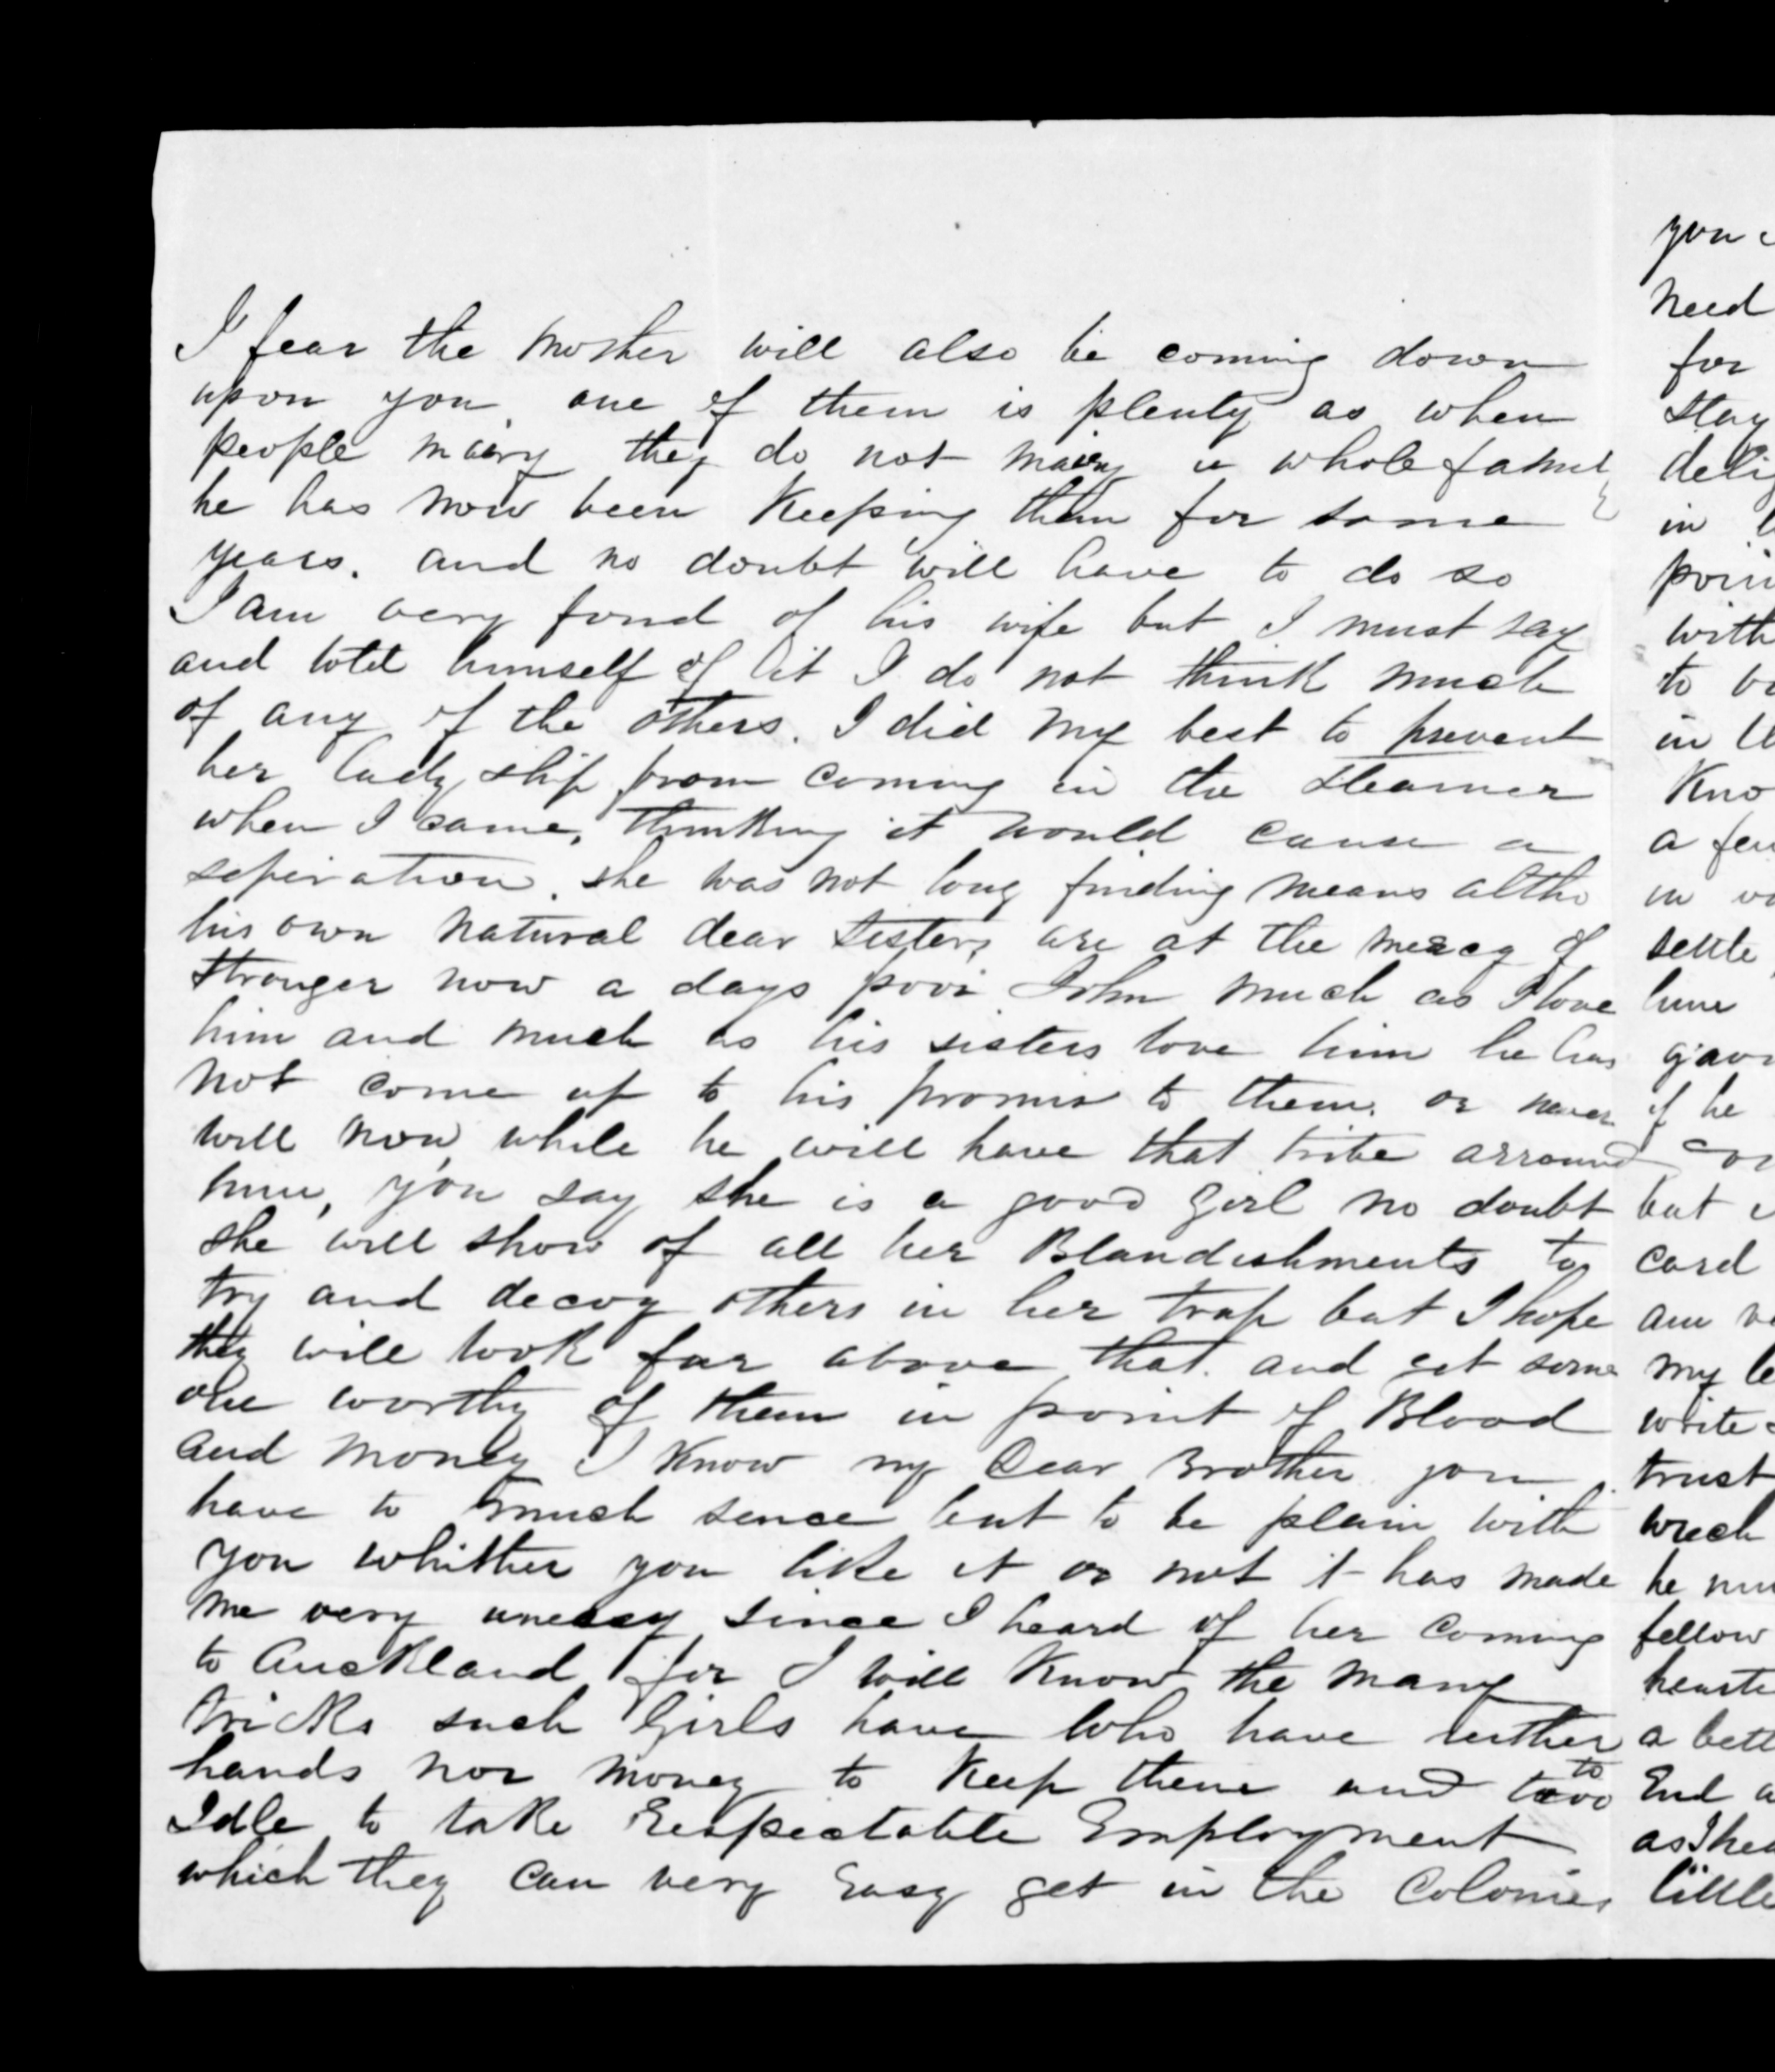 I fear the Mother will also be coming down
upon you, one of them is plenty as when
people marry they do not marry a whole family
he has now been Keeping them for some
years. and no doubt will have to do so
I am very fond of his wife but I must say
and told himself of it I do not think much
of any of the others. I did my best to prevent
her lady ship from coming in the Steamer
when I came, thinking it would cause a
seperation. she was not long finding means altho
his own natural dear Sisters are at the mercy of
Stranger now a days poor John much as I love
him and much as his sisters love him he has
not come up to his promise to them. or never
will now while he will have that tribe arround
him, you say she is a good Girl no doubt
she will show of all her Blandishments to
try and decoy others in her trap but I hope
they will look far above that. and get some
one worthy of them in point of Blood
and Money I Know my Dear Brother you
have to much sence but to be plain with
you whither you like it or not it has made
me very uneasy since I heard of her coming
to Auckland for I will Know the many
tricks such Girls have who have neither
hands nor money to Keep them and to
Idle to take Respectable Employment
which they can very Easy get in the Colonies
you
need
for
stay
in
with
to
in
a
in
settle
him
if he
but
card
am
my
write
trust
wreck
he
fellow
a
End
as I
little